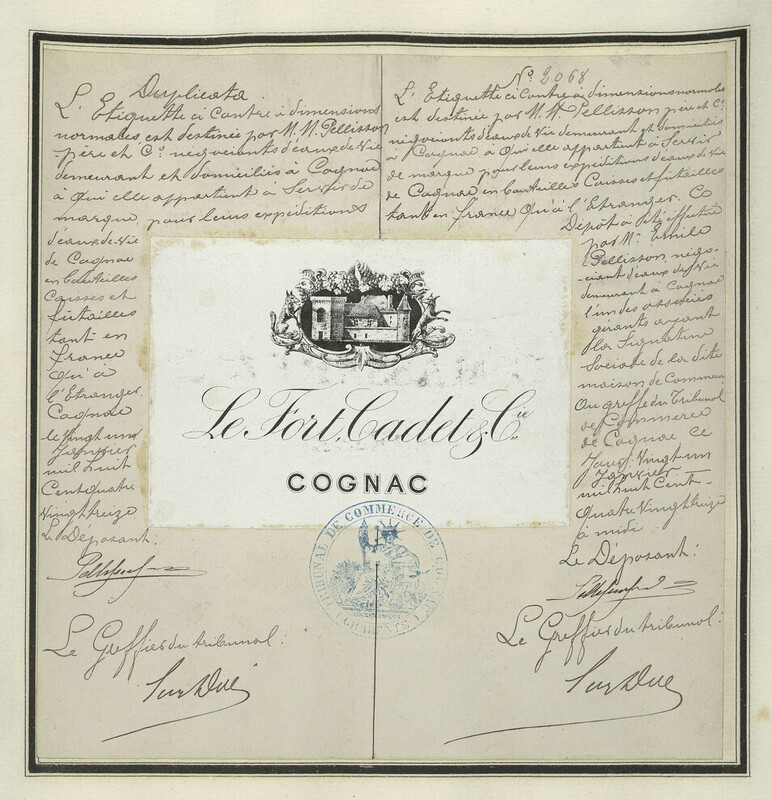 Duplicata
L'Etiquette ci Contre à dimensions
normales est destinée par M.M. Pellisson
père et Cº negociants d'eaux de Vie
demeurant et domiciliés à Cognac
à Qui elle appartient à Servir de
marque pour leurs expéditions
d'eaux-de-Vie
de Cognac
en bouteilles
Caisses et
futailles
tant en
france
Qu'à
l'Etranger.
Cognac
le Vingt un
Janvier
mil huit
Cent quatre
Vingt treize
Le Déposant:
Le Greffier du tribunal:
Nº 2068
L'Etiquette ci Contre à dimensions normales
est destinée par M.M. Pellisson père et Cº
négociants d'eaux de Vie demeurant et domiciliés
à Cognac à Qui elle appartient à Servir
de marque pour leurs expéditions d'eaux de Vie
de Cognac en bouteilles Caisses et futailles
tant en france Qu'à l'Etranger. Ce
Dépôt a été effectué
par Mr. Emile
Pellisson, négo-
ciant d'eaux de Vie
demeurant à Cognac
l'un des associés
gerants ayant
la Signature
Sociale de la dite
maison de Commerce
Au greffe du Tribunal
de Commerce
de Cognac ce
Jourd. Vingt un
Janvier
mil huit Cent-
quatre Vingt treize
à midi
Le Déposant:
Le Greffier du tribunal:
Le Fort, Cadet & Cie
COGNAC
TRIBUNAL DE COMMERCE DE COGNAC
(CHARENTE)